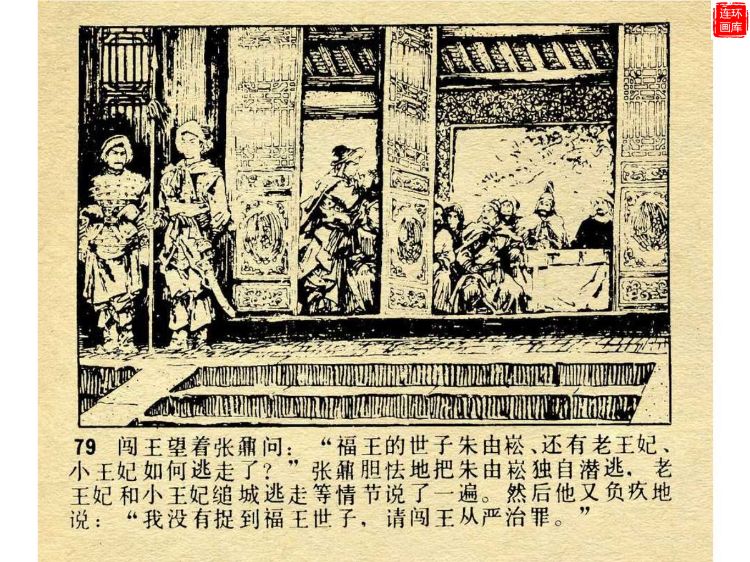 连环
画库
79 闯王望着张鼐问：“福王的世子朱由崧、还有老王妃、
小王妃如何逃走了？”张鼐胆怯地把朱由崧独自潜逃，老
王妃和小王妃缒城逃走等情节说了一遍。然后他又负疚地
说：“我没有捉到福王世子，请闯王从严治罪。”